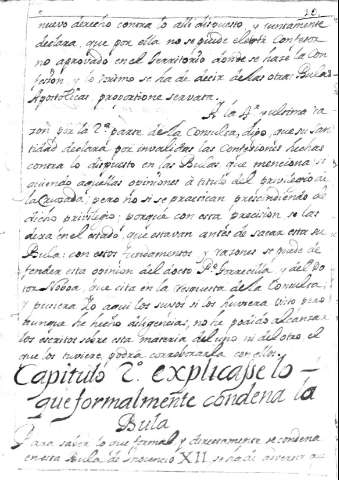 nuevo derecho contra lo alli dispuesto y juntamente
declara, que por ella no se puede elexir Confesor
no aprovado en el territorio donde se hace la Con
fesion, y lo mismo se ha de decir de las otras Bulas
Apostolicas proportione servata.
A la 4ª y ultima ra
zon por la 2ª parte de la Consulta, digo, que su San
tidad declara por invalidas las Confesiones hechas
contra lo dispuesto en las Bulas que menciona si
guiendo aquellas opiniones à titulo del privilexio de
la Cruzada; pero no si se practican prescindiendo de
dicho privilegio; porque con esta precision se las
dexa en el estado que estavan antes de sacar esta su
Bula: con estos fundamentos y razones se puede de
fender esta opinion del docto Pe. y del Do
tor que cita en la respuesta de la Consulta,
y pusiera Yo aqui los suyos si los huviera visto pero
aunque he hecho diligencias, no he podido alcanzar
los escritos sobre esta materia del uno ni del otro el
que los tuviere podrà corroborarla con ellos.
Capitulo 2º explicasse lo
que formalmente condena la
Bula
Para saber lo que formal y directamente se condena
en esta Bula de Inocencio XII se ha de advertir que